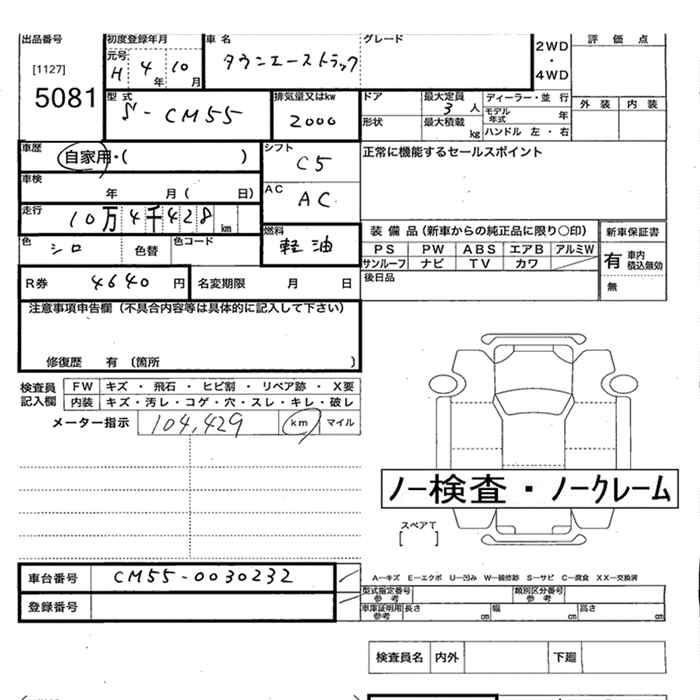 出品番号
[1127]
5081
初度登録年月
元号
H 4年 10月
車名
タウンエーストラック
グレード
2WD
・
4WD
評価点
外装 内装
型式
S-CM55
排気量又はkw
2000
ドア
形状
最大定員
3人
最大積載
kg
ディーラー・並行
モデル年式 年
ハンドル 左・右
車歴
自家用・( )
シフト
C5
正常に機能するセールスポイント
車検
年 月( 日)
AC
AC
走行
10万4千428km
燃料
軽油
色
シロ
色替
色コード
装備品(新車からの純正品に限り○印)
新車保証書
PS PW ABS エアB アルミW
サンルーフ ナビ TV カワ
有 車内積込無効
無
後日品
R券 4640円
名変期限 月 日
注意事項申告欄(不具合内容等は具体的に記入して下さい)
修復歴 有 (箇所 )
検査員記入欄
FW キズ・飛石・ヒビ割・リペア跡・X要
内装 キズ・汚レ・コゲ・穴・スレ・キレ・破レ
メーター指示 104,429 km マイル
ノー検査・ノークレーム
スペアT
[ ]
車台番号 CM55-0030232
登録番号
A―キズ E―エクボ U―凹み W―補修跡 S―サビ C―腐食 XX―交換済
型式指定番号参考
類別区分番号参考
車庫証明用参考 長さ cm 幅 cm 高さ cm
検査員名 内外 下廻